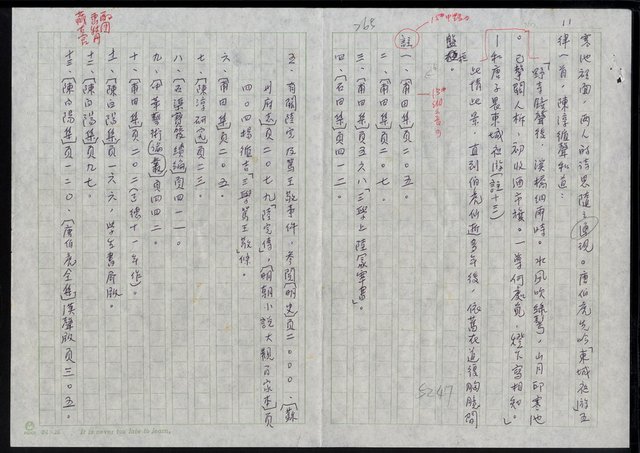 11
寒池碧圃，兩人的詩思隨之湧現。唐伯虎先吟「東城夜游」五
律一首，陳淳循聲和道：
「野寺殘聲後，溪橋細雨時。水風吹綠鬢，山月印寒池
已擊關人柝，初收酒市旗。一尊何處負，燈下寫相知。」
—和唐子畏東城夜游（註十三）
此情此景，直到伯虎仙逝多年後，依舊在道復胸臆間
盤桓。
註
一、〔甫田集〕頁二〇七。
二、〔甫田集〕頁二〇七。
三、〔甫田集〕頁五六八「三學上陸冢宰書」。
四、〔石田集〕頁四一二。
五、有關陸完及篤王敬事件，參閱〔明史〕頁二〇〇〇、〔蘇
州府志〕頁二〇七九「陸完傳」，〔明朝小說大觀〕百家本頁
四〇四楊循吉「三學篤王敬」條。
六、〔甫田集〕頁二〇五。
七、〔陳淳研究〕頁二三。
八、〔石渠寶笈續編〕頁四一一。
九、〔中華藝術論叢〕頁四四二。
十、〔甫田集〕頁二〇二（正德十一年作）。
十一、〔陳白陽集〕頁六六，學生書局版。
十二、〔陳白陽集〕頁九七。
十三、〔陳白陽集〕頁一二〇、〔唐伯虎全集〕漢聲版頁三〇五。
765
5247
It is never too late to learn.